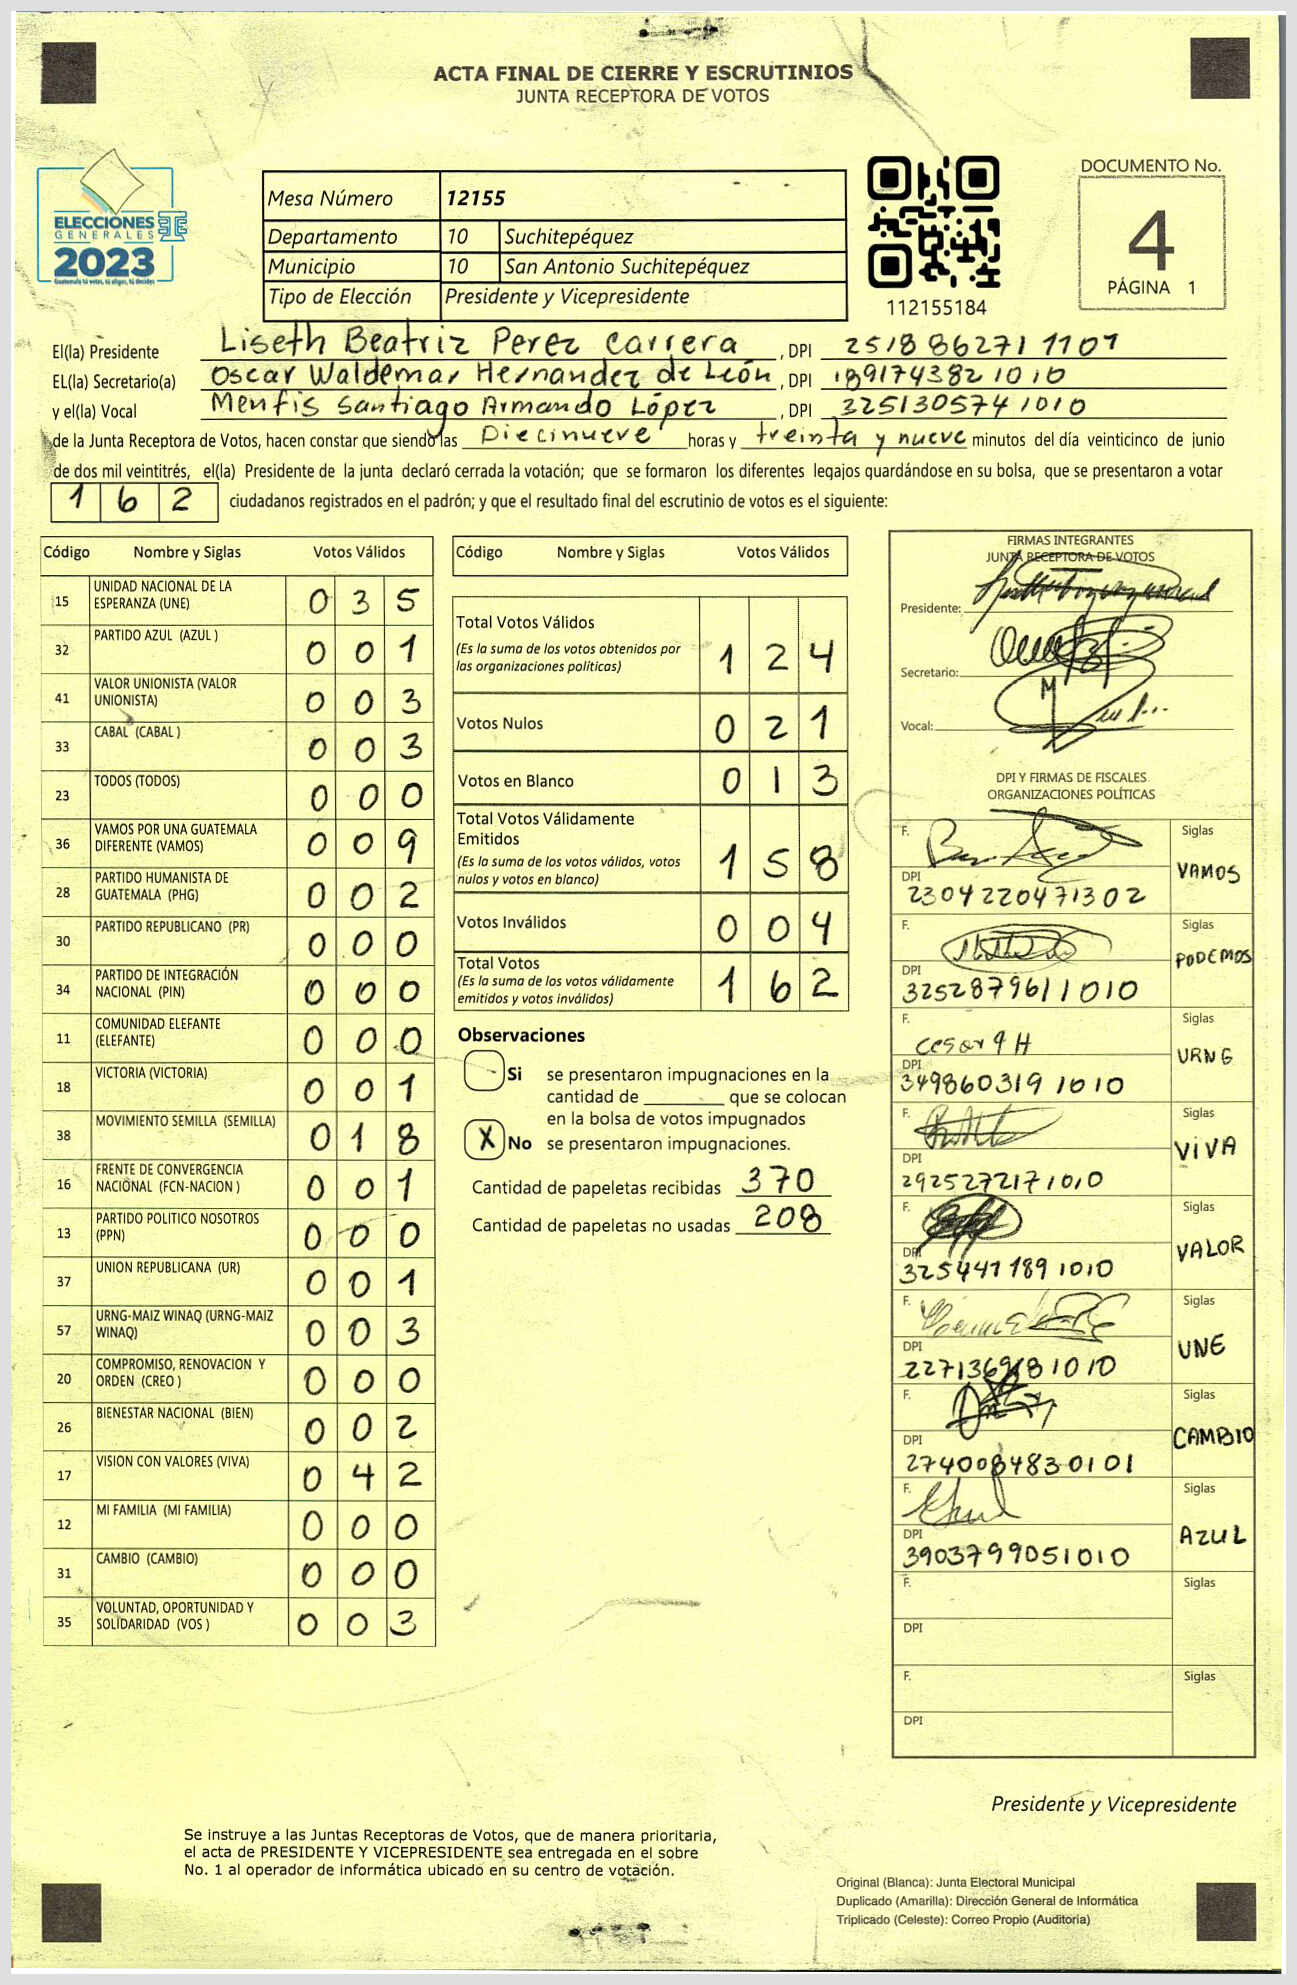 ACTA FINAL DE CIERRE Y ESCRUTINIOS
JUNTA RECEPTORA DE VOTOS
ELECCIONES
GENERALES
2023
Guatemala tú votas, tú eliges, tú decides
Mesa Número 12155
Departamento 10 Suchitepéquez
Municipio 10 San Antonio Suchitepéquez
Tipo de Elección Presidente y Vicepresidente
112155184
DOCUMENTO No.
4
PÁGINA 1
El(la) Presidente Liseth Beatriz Perez Carrera , DPI 2518 86271 1101
EL(la) Secretario(a) Oscar Waldemar Hernandez de León , DPI 1891743821010
y el(la) Vocal Menfis Santiago Armando López , DPI 3251305741010
de la Junta Receptora de Votos, hacen constar que siendo las Diecinueve horas y treinta y nueve minutos del día veinticinco de junio
de dos mil veintitrés, el(la) Presidente de la junta declaró cerrada la votación; que se formaron los diferentes legajos guardándose en su bolsa, que se presentaron a votar
1 6 2 ciudadanos registrados en el padrón; y que el resultado final del escrutinio de votos es el siguiente:
Código Nombre y Siglas Votos Válidos
15 UNIDAD NACIONAL DE LA ESPERANZA (UNE) 0 3 5
32 PARTIDO AZUL (AZUL ) 0 0 1
41 VALOR UNIONISTA (VALOR UNIONISTA) 0 0 3
33 CABAL (CABAL ) 0 0 3
23 TODOS (TODOS) 0 0 0
36 VAMOS POR UNA GUATEMALA DIFERENTE (VAMOS) 0 0 9
28 PARTIDO HUMANISTA DE GUATEMALA (PHG) 0 0 2
30 PARTIDO REPUBLICANO (PR) 0 0 0
34 PARTIDO DE INTEGRACIÓN NACIONAL (PIN) 0 0 0
11 COMUNIDAD ELEFANTE (ELEFANTE) 0 0 0
18 VICTORIA (VICTORIA) 0 0 1
38 MOVIMIENTO SEMILLA (SEMILLA) 0 1 8
16 FRENTE DE CONVERGENCIA NACIONAL (FCN-NACION ) 0 0 1
13 PARTIDO POLITICO NOSOTROS (PPN) 0 0 0
37 UNION REPUBLICANA (UR) 0 0 1
57 URNG-MAIZ WINAQ (URNG-MAIZ WINAQ) 0 0 3
20 COMPROMISO, RENOVACION Y ORDEN (CREO ) 0 0 0
26 BIENESTAR NACIONAL (BIEN) 0 0 2
17 VISION CON VALORES (VIVA) 0 4 2
12 MI FAMILIA (MI FAMILIA) 0 0 0
31 CAMBIO (CAMBIO) 0 0 0
35 VOLUNTAD, OPORTUNIDAD Y SOLIDARIDAD (VOS ) 0 0 3
Código Nombre y Siglas Votos Válidos
Total Votos Válidos
(Es la suma de los votos obtenidos por
las organizaciones políticas) 1 2 4
Votos Nulos 0 2 1
Votos en Blanco 0 1 3
Total Votos Válidamente
Emitidos
(Es la suma de los votos válidos, votos
nulos y votos en blanco) 1 5 8
Votos Inválidos 0 0 4
Total Votos
(Es la suma de los votos válidamente
emitidos y votos inválidos) 1 6 2
Observaciones
Si se presentaron impugnaciones en la
cantidad de ________ que se colocan
en la bolsa de votos impugnados
X No se presentaron impugnaciones.
Cantidad de papeletas recibidas 370
Cantidad de papeletas no usadas 208
FIRMAS INTEGRANTES
JUNTA RECEPTORA DE VOTOS
Presidente:
Secretario:
Vocal:
DPI Y FIRMAS DE FISCALES
ORGANIZACIONES POLÍTICAS
F. Siglas
VAMOS
DPI
2304220471302
F. Siglas
PODEMOS
DPI
3252879611010
F. Siglas
URNG
DPI
3498603191010
F. Siglas
ViVA
DPI
2925272171010
F. Siglas
VALOR
DPI
3254471891010
F. Siglas
UNE
DPI
2271369181010
F. Siglas
CAMBIO
DPI
2740084830101
F. Siglas
AZUL
DPI
3903799051010
F. Siglas
DPI
F. Siglas
DPI
Presidente y Vicepresidente
Se instruye a las Juntas Receptoras de Votos, que de manera prioritaria,
el acta de PRESIDENTE Y VICEPRESIDENTE sea entregada en el sobre
No. 1 al operador de informática ubicado en su centro de votación.
Original (Blanca): Junta Electoral Municipal
Duplicado (Amarilla): Dirección General de Informática
Triplicado (Celeste): Correo Propio (Auditoría)